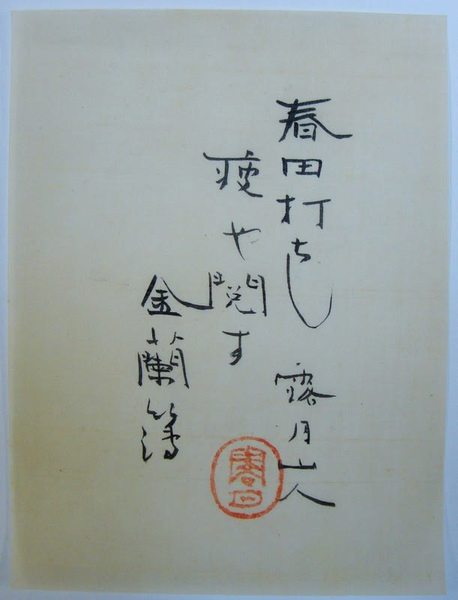 春田打ちし
疲や閲す
金蘭簿
露月山人